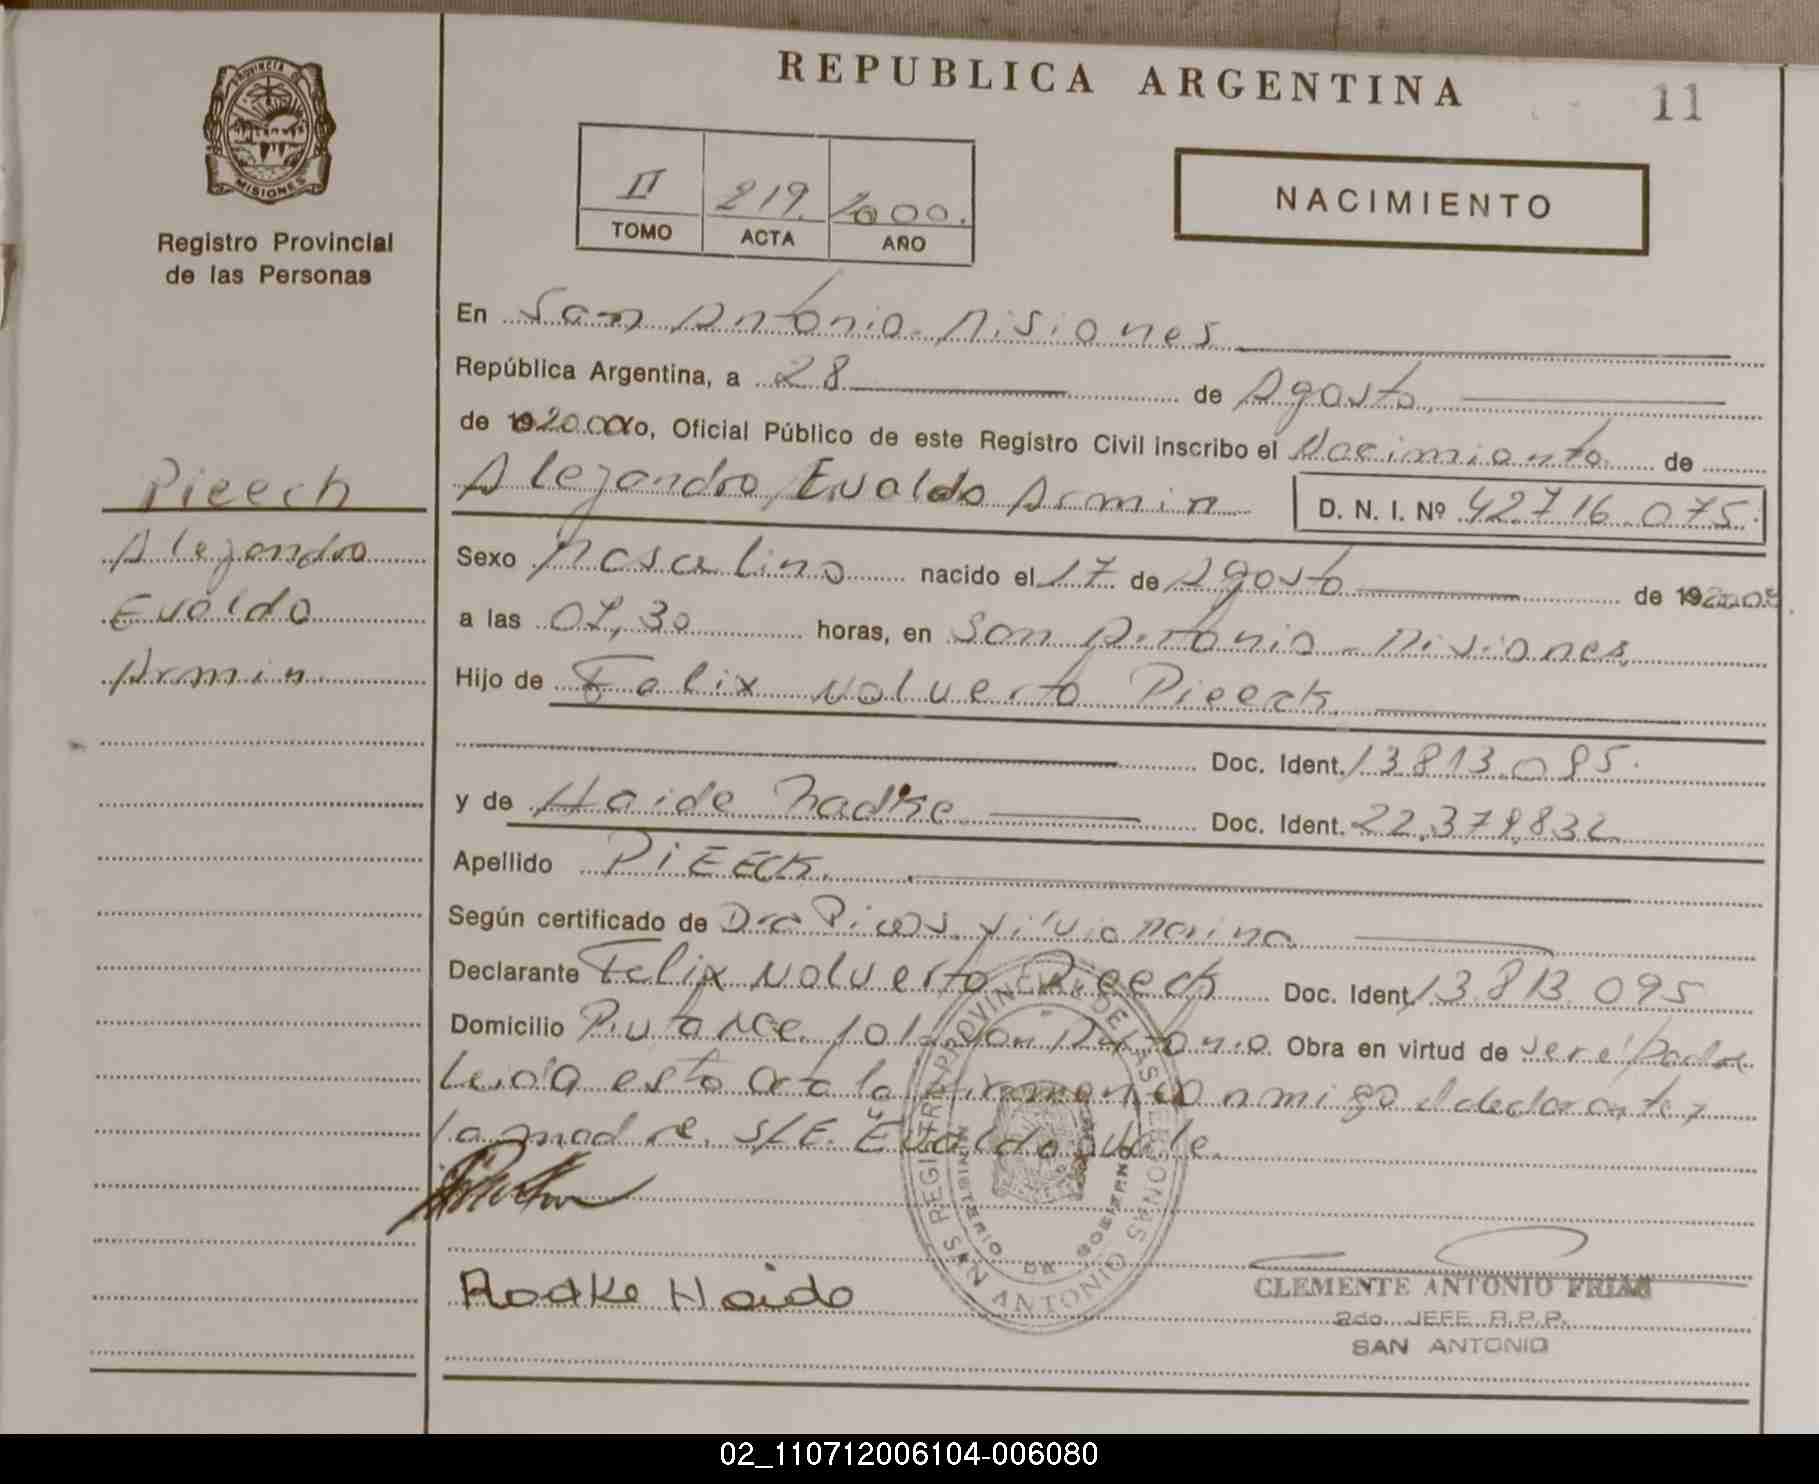 REPUBLICA ARGENTINA
11
PROVINCIA DE
MISIONES
Registro Provincial
de las Personas
II 219. 2000.
TOMO ACTA AÑO
NACIMIENTO
En San Antonio. Misiones
República Argentina, a 28 de Agosto
de 2000, Oficial Público de este Registro Civil inscribo el Nacimiento de
Alejandro Evaldo Armin D. N. I. Nº 42716.075.
Pieech
Alejandro
Evaldo
Armin
Sexo Masculino nacido el 17 de Agosto de 192000
a las 01,30 horas, en San Antonio - Misiones.
Hijo de Felix Nolverto Pieeck
Doc. Ident. 13.813.095.
y de Haide Radke Doc. Ident. 22.379.832
Apellido PiEECK.
Según certificado de Dra Silvia Marina
Declarante Felix Nolverto Pieeck Doc. Ident. 13.813.095
Domicilio San Antonio Obra en virtud de ser el padre
Leida esta acta la firman conmigo el declarante y
la madre. S/E. Evaldo vale.
REGISTRO PROVINCIAL DE LAS PERSONAS
MINISTERIO DE GOBIERNO
SAN ANTONIO
MISIONES
Radke Haide
CLEMENTE ANTONIO FRIAS
2do. JEFE R.P.P.
SAN ANTONIO
02_110712006104-006080